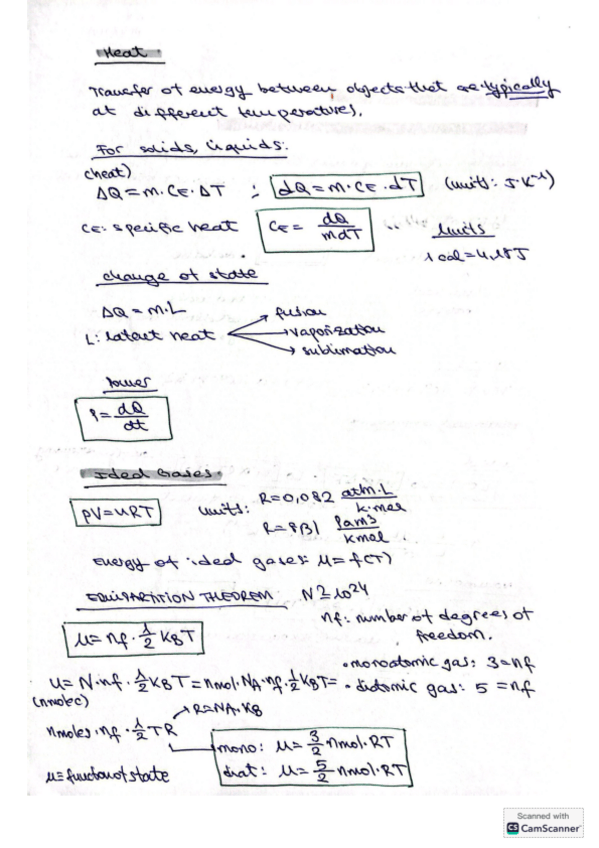 Heat.
Transfer of energy between objects that are typically
at different temperatures.
For solids, liquids:
(heat)
ΔQ = m·CE·ΔT ∴ dQ = m·CE·dT (units: J·K⁻¹)
CE: specific heat CE = dQ/mdT Units
1 cal = 4,18J
Change of state
ΔQ = m·L
L: latent heat → fusion
→ vaporization
→ sublimation
Power
P = dQ/dt
Ideal Gases.
PV = nRT units: R = 0,082 atm·L/K·mol
R = 8,31 Pa m³/K mol
Energy of ideal gases: U = f(T)
EQUIPARTITION THEOREM: N ≃ 10²⁴
nf: number of degrees of
freedom.
U = nf · 1/2 KBT
• monoatomic gas: 3 = nf
U = N·nf · 1/2 KBT = nmol·NA·nf · 1/2 KBT = • diatomic gas: 5 = nf
(nmolec)
→ R = NA·KB
nmoles·nf · 1/2 TR
mono: U = 3/2 nmol·RT
diat: U = 5/2 nmol·RT
U ≡ function of state
Scanned with
CS CamScanner